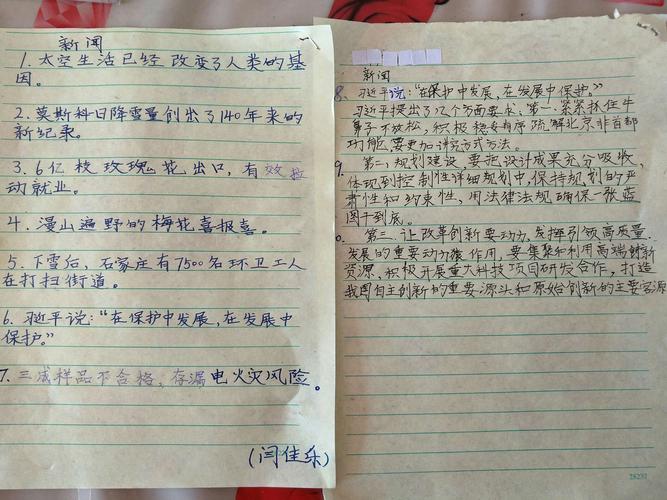 新闻
1. 太空生活已经改变了人类的基
因。
2. 莫斯科日降雪量创出了140年来的
新纪录。
3. 6亿枝玫瑰花出口，有效拉
动就业。
4. 漫山遍野的梅花喜报喜。
5. 下雪后，石家庄有7500名环卫工人
在打扫街道。
6. 习近平说：“在保护中发展，在发展中
保护。”
7. 三成样品不合格，存漏电火灾风险。
(闫佳乐)
新闻
8. 习近平说：“在保护中发展，在发展中保护。”
习近平提出了几个方面要求：第一，紧紧抓住牛
鼻子不放松，积极稳妥有序疏解北京非首都
功能，要更加讲究方式方法。
9. 第二，规划建设，要把设计成果充分吸收、
体现到控制性详细规划中，保持规划的严
肃性和约束性，用法律法规确保一张蓝
图干到底。
第三，让改革创新要动力，发挥引领高质量
发展的重要动力源作用，要集聚和利用高端创新
资源，积极开展重大科技项目研发合作，打造
我国自主创新的重要源头和原始创新的主要
28232